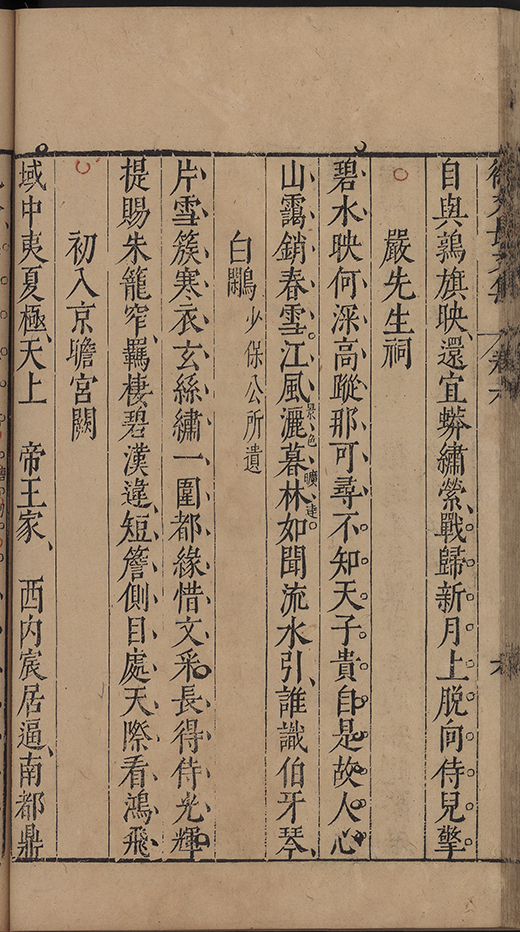 自與鶉旗映還宜蟒繡縈戰歸新月上脫向侍兒擎
嚴先生祠
碧水映何深高蹤那可尋不知天子貴自是故人心
山靄銷春雪江風灑暮林如聞流水引誰識伯牙琴
景色曠達
白鷴少保公所遺
片雪簇寒衣玄絲繡一圍都緣惜文采長得侍光輝
提賜朱籠窄羈棲碧漢違短簷側目處天際看鴻飛
初入京瞻宮闕
域中夷夏極天上 帝王家 西內宸居逼南都鼎